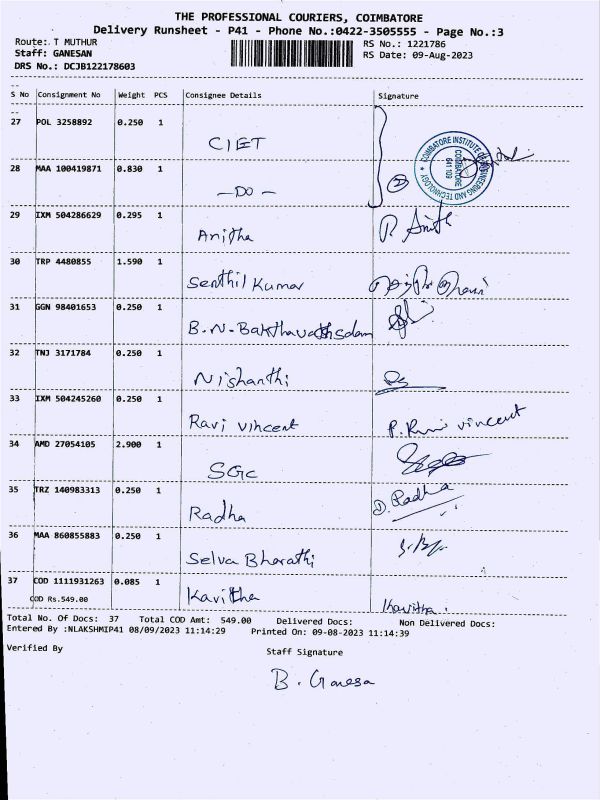 THE PROFESSIONAL COURIERS, COIMBATORE
Delivery Runsheet - P41 - Phone No.:0422-3505555 - Page No.:3
Route: T MUTHUR
RS No.: 1221786
Staff: GANESAN
RS Date: 09-Aug-2023
DRS No.: DCJB122178603
S No Consignment No Weight PCS Consignee Details Signature
27 POL 3258892 0.250 1 CIET
28 MAA 100419871 0.830 1 -DO- 2
COIMBATORE INSTITUTE OF ENGINEERING AND TECHNOLOGY
COIMBATORE
641 109
29 IXM 504286629 0.295 1 Anitha P. Anith
30 TRP 4480855 1.590 1 Senthil Kumar
31 GGN 98401653 0.250 1 B.N-Bakthavathsalam
32 TNJ 3171784 0.250 1 Nishanthi
33 IXM 504245260 0.250 1 Ravi vincent P. Ravi vincent
34 AMD 27054105 2.900 1 SGC
35 TRZ 140983313 0.250 1 Radha D. Radha
36 MAA 860855883 0.250 1 Selva Bharathi
37 COD 1111931263 0.085 1 Kavitha Kavitha.
COD Rs.549.00
Total No. Of Docs: 37 Total COD Amt: 549.00 Delivered Docs: Non Delivered Docs:
Entered By :NLAKSHMIP41 08/09/2023 11:14:29 Printed On: 09-08-2023 11:14:39
Verified By Staff Signature
B. Ganesa